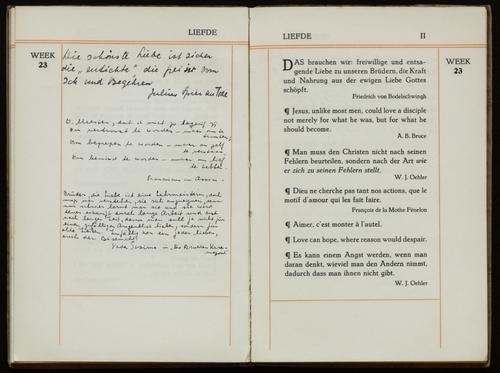 LIEFDE
WEEK
23
Die schönste Liebe ist sicher
die die frei ist vom
Ich und Begehren
Julius
O, Meester, dat ik niet zo begerig zij
Om verstaan te worden — maar om te
troosten,
Om begrepen te worden — maar om zelf
te verstaan
Om bemind te worden — maar om lief
te hebben.
Franciscus v. Assisi.
Brüder, die Liebe ist eine Lehrmeisterin, doch
man muss verstehen, sie sich anzueignen, denn
erwirbt durch lange Arbeit und erst
nach langer Zeit, denn man soll ja nicht für
einen Augenblick lieben, sondern für
kann ein jeder lieben,
auch der Bösewicht.
Vater Sosima in: Die Brüder Kara-
masow
LIEFDE II
DAS brauchen wir: freiwillige und entsa-
gende Liebe zu unseren Brüdern, die Kraft
und Nahrung aus der ewigen Liebe Gottes
schöpft.
Friedrich von Bodelschwingh
¶ Jesus, unlike most men, could love a disciple
not merely for what he was, but for what he
should become.
A. B. Bruce
¶ Man muss den Christen nicht nach seinen
Fehlern beurteilen, sondern nach der Art wie
er zich zu seinen Fehlern stellt.
W. J. Oehler
¶ Dieu ne cherche pas tant nos actions, que le
motif d'amour qui les fait faire.
François de la Mothe Fénelon
¶ Aimer, c'est monter à l'autel.
¶ Love can hope, where reason would despair.
¶ Es kann einem Angst werden, wenn man
daran denkt, wieviel man den Andern nimmt,
dadurch dass man ihnen nicht gibt.
W. J. Oehler
WEEK
23